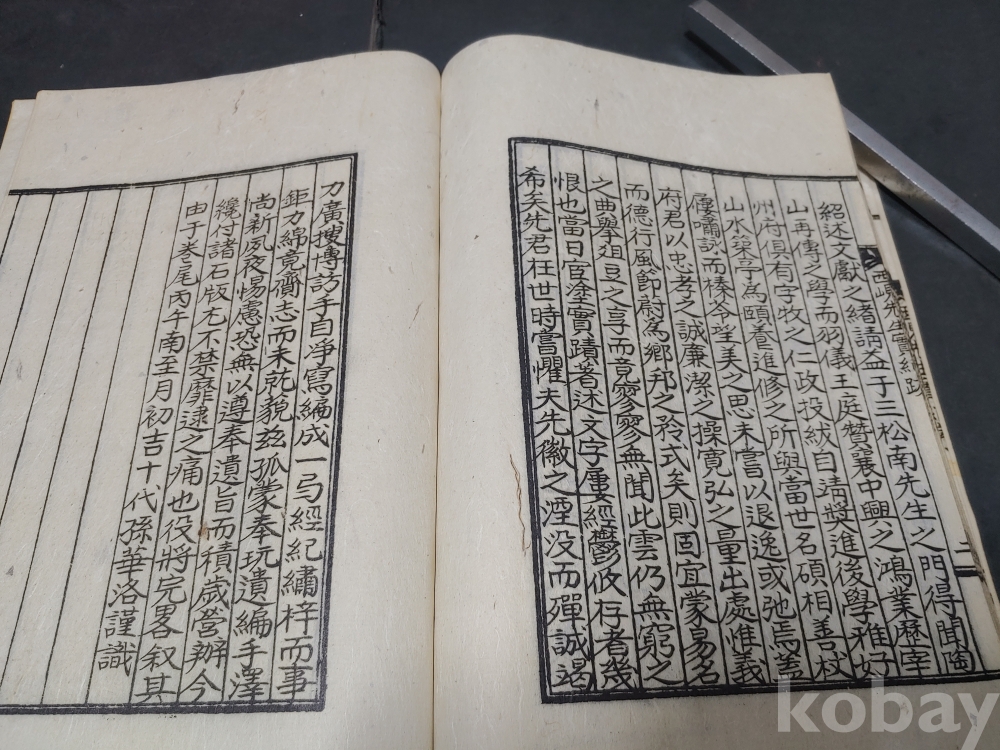 紹述文獻之緖請益于三松南先生之門得聞陶
山再傳之學而羽儀王庭贊襄中興之鴻業歷宰
州府俱有字牧之仁政投紱自靖奬進後學雅好
山水築亭爲頤養進修之所與當世名碩相善杖
屨嘯詠而榛令望美之思未嘗以退逸或弛焉盖
府君以忠孝之誠廉潔之操寬弘之量出處惟義
而德行風節蔚爲鄉邦之矜式矣則固宜蒙易名
之典擧俎豆之享而竟寥寥無聞此雲仍無窮之
恨也當日官塗實蹟著述文字屢經鬱攸存者幾
希矣先君在世時嘗懼夫先徽之湮没而殫誠竭
力廣搜博訪手自净寫編成一弓經紀繡梓而事
鉅力綿竟齎志而未就藐玆孤蒙奉玩遺編手澤
尚新夙夜惕慮恐無以遵奉遺旨而積歲營辦今
纔付諸石版尤不禁靡逮之痛也役將完畧叙其
由于卷尾丙午南至月初吉十代孫華洛謹識
先生實紀跋
二
kobay